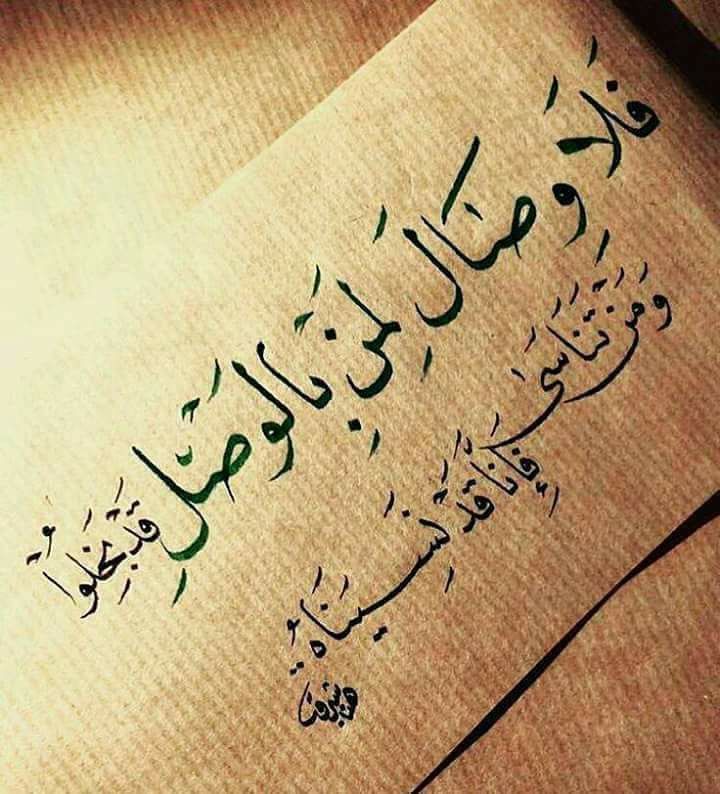 فَلَا وِصَالَ لِمَنْ بَالوَصْلِ قَدْ بَخِلُوا
وَمَنْ تَنَاسَىٰ فَإِنَّا قَدْ نَسَيْنَاهُ